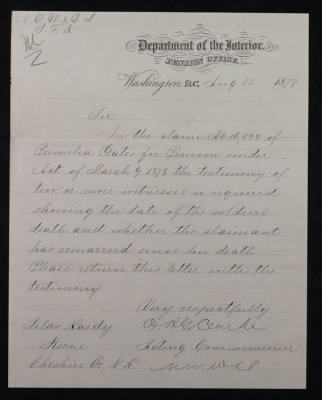 Department of the Interior,
PENSION OFFICE,
Washington, D.C. Aug 23 1878
Sir
In the claim No 16,444 of
Permelia Oates for Pension under
Act of March 9 1878 the testimony of
two or more witnesses is required
showing the date of the soldier's
death and whether the claimant
has remarried since his death.
Please return this letter with the
testimony
Very respectfully
Silas Hardy
Keene
Acting Commissioner
Cheshire Co, N.H.